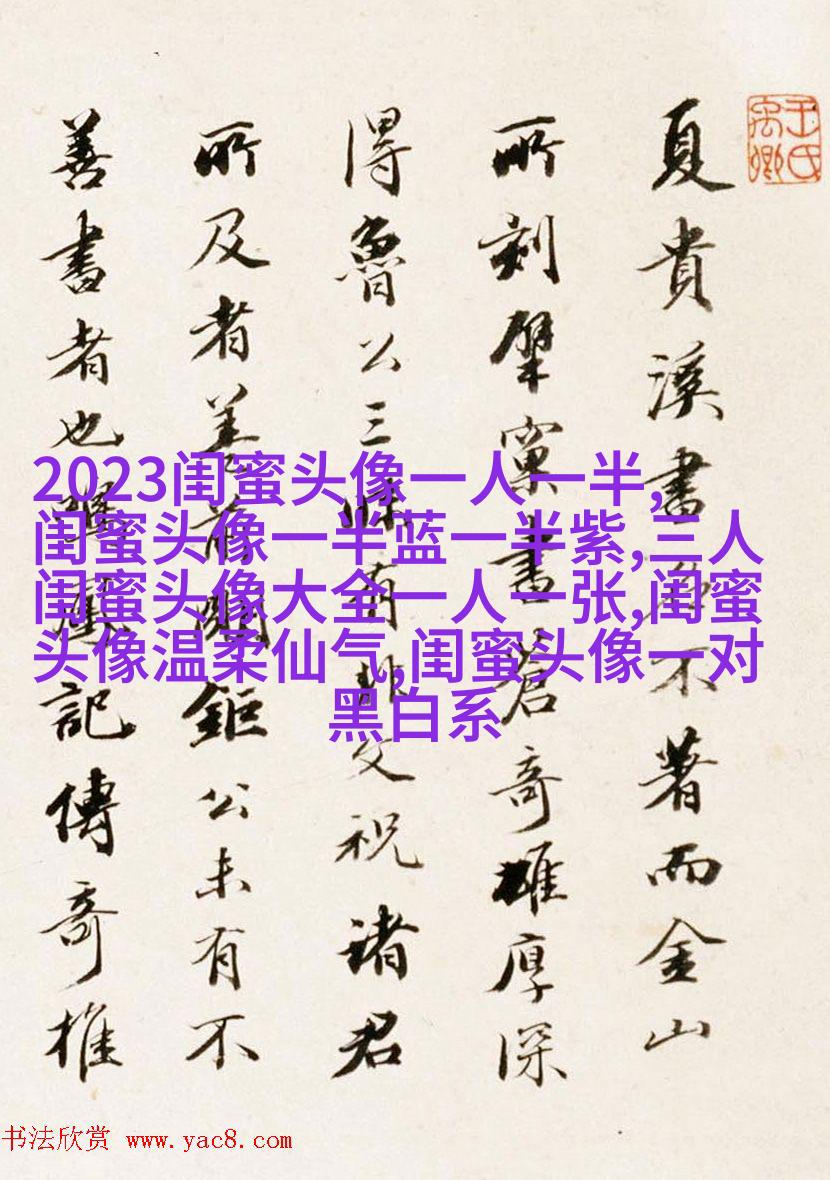 王氏
禹卿
夏貴溪書不著而金山
所刻擘窠書蒼奇雄厚深
得魯公三昧有非文祝諸君
所及者蓋前明鉅公未有不
善書者也記傳奇推
2023闺蜜头像一人一半,
闺蜜头像一半蓝一半紫,三人
闺蜜头像大全一人一张,闺蜜
头像温柔仙气,闺蜜头像一对
黑白系
书法欣赏 www.yac8.com